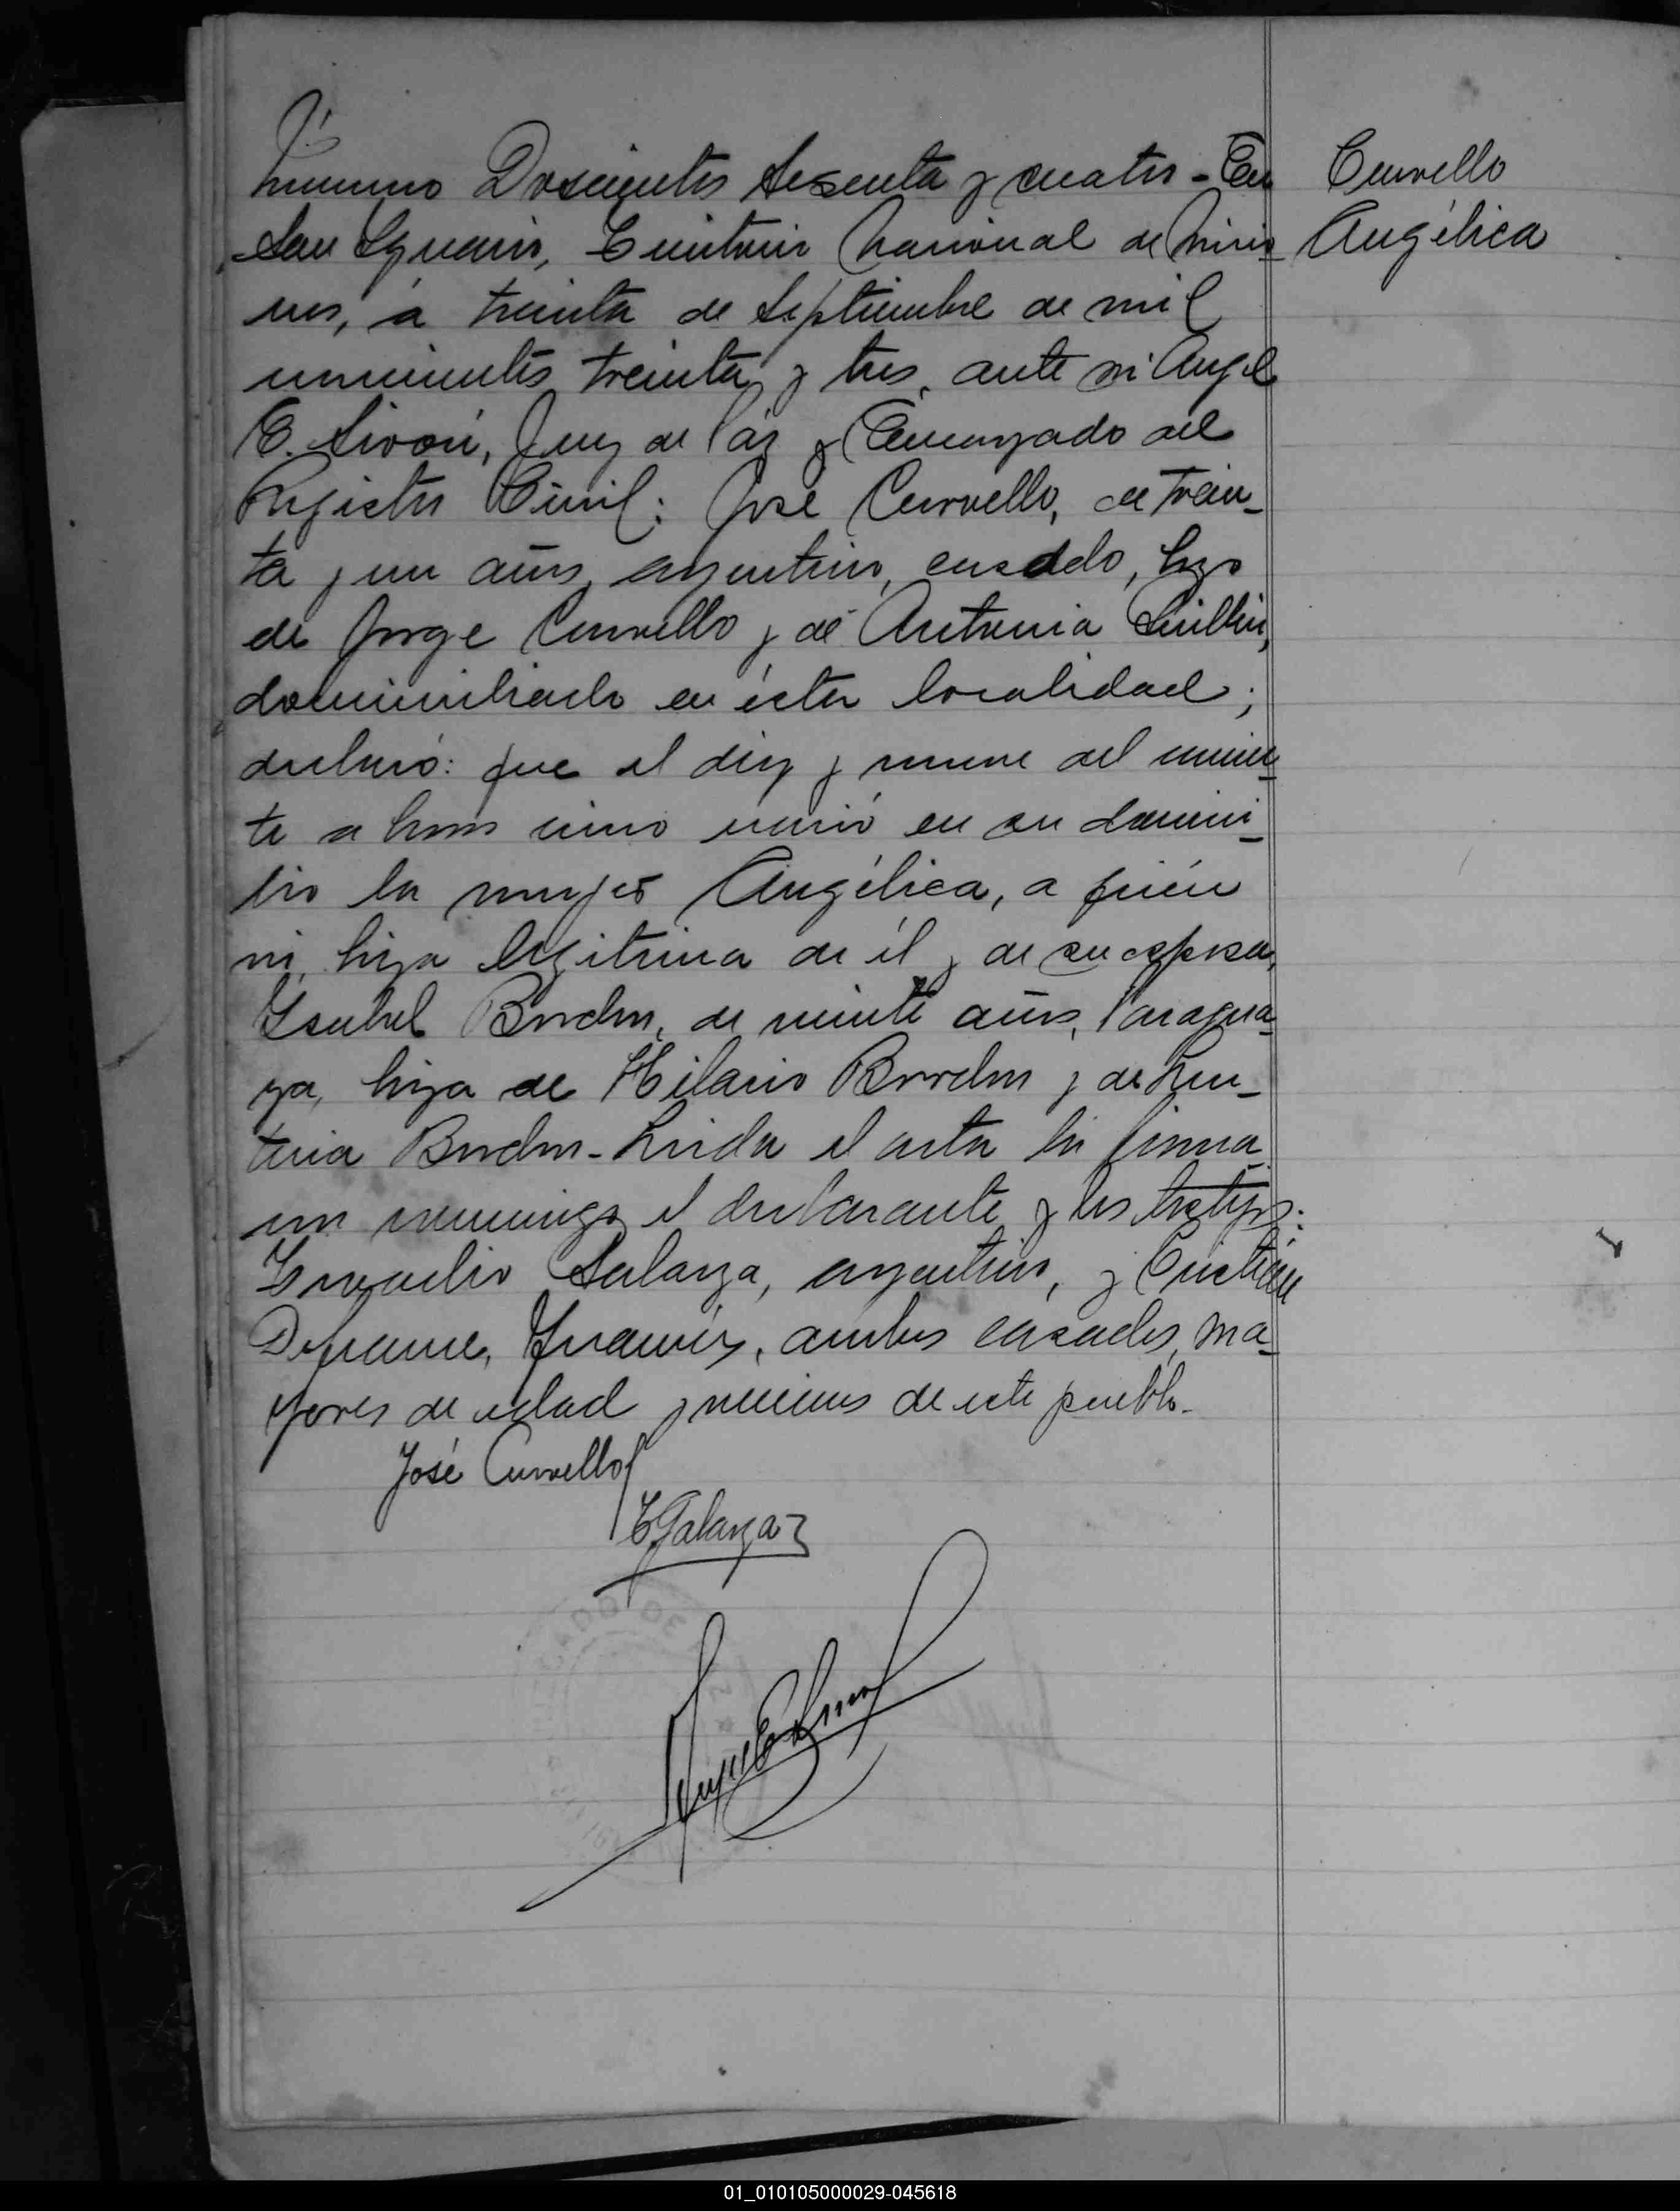 Número Doscientos sesenta y cuatro - En
San Ignacio, Territorio Nacional de Misio-
nes, a treinta de Septiembre de mil
novecientos treinta y tres, ante mi Angel
E. Sivori, Juez de Paz y Encargado del
Registro Civil: José Curvello, de trein-
ta y un años, argentino, casado, hijo
de Jorge Curvello y de Antonia
domiciliado en ésta localidad;
declaró: que el diez y nueve del corrien-
te a horas cinco nació en su domici-
lio la mujer Angélica, a quién
vi, hija legitima de él y de su esposa,
Isabel Bordon, de veinte años, Paragua-
ya, hija de Hilario Bordon y de
Bordon - Leida el acta la firma
con conmigo el declarante y los testigos:
Galarza, argentino, y Cristian
Francés, ambos casados, ma-
yores de edad y vecinos de este pueblo.
José Curvello
E. Galarza
Angel E. Sivori
Curvello
Angélica
01_010105000029-045618